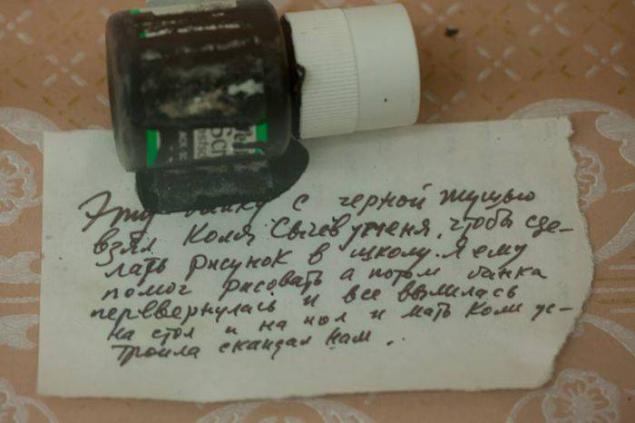 Эту банку с черной тушью
взял Коля Сычев у меня, чтобы сде-
лать рисунок в школу. Я ему
помог рисовать а потом банка
перевернулась и все вылилась
на стол и на пол и мать Коли ус-
троила скандал нам.